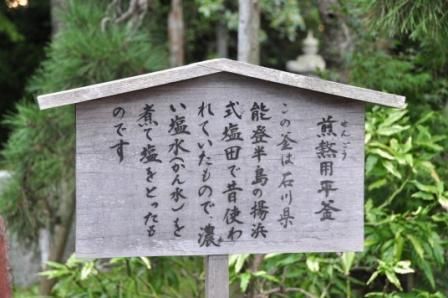 せんごう
煎熬用平釜
この釜は石川県
能登半島の揚浜
式塩田で昔使わ
れていたもので、濃
い塩水(かん水)を
煮て塩をとったも
のです